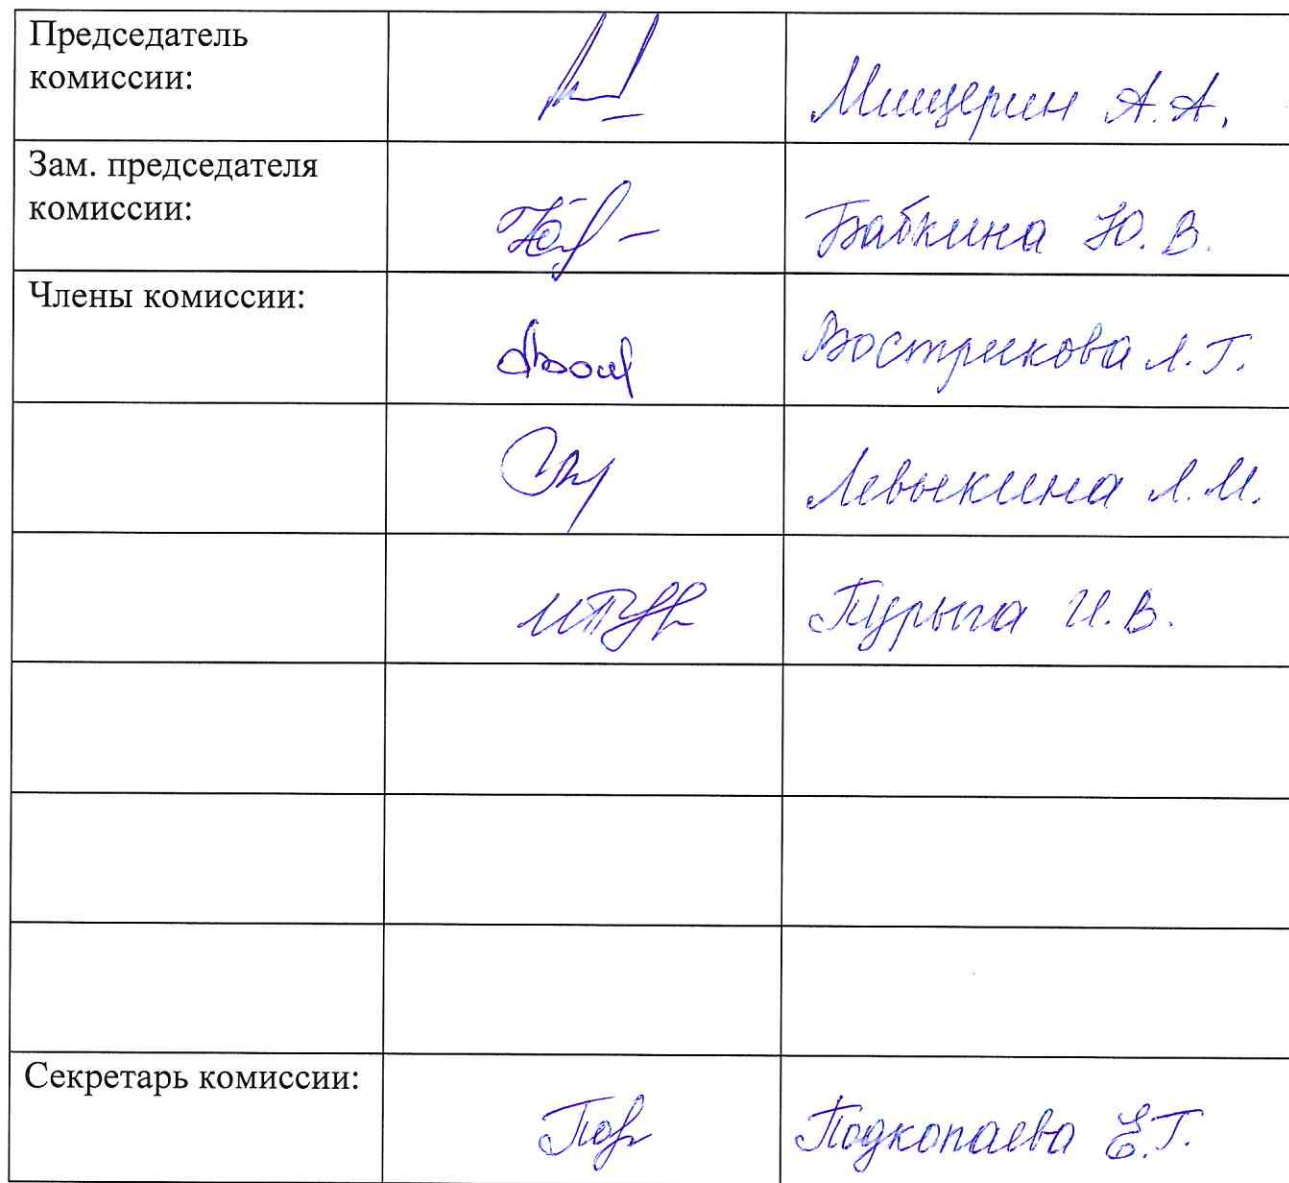 Председатель
комиссии:
Мищерин А.А.
Зам. председателя
комиссии:
Бабкина Ю.В.
Члены комиссии:
Вострикова Л.Г.
Левыкина Л.И.
Пурыга И.В.
Секретарь комиссии:
Подкопаева Е.Г.